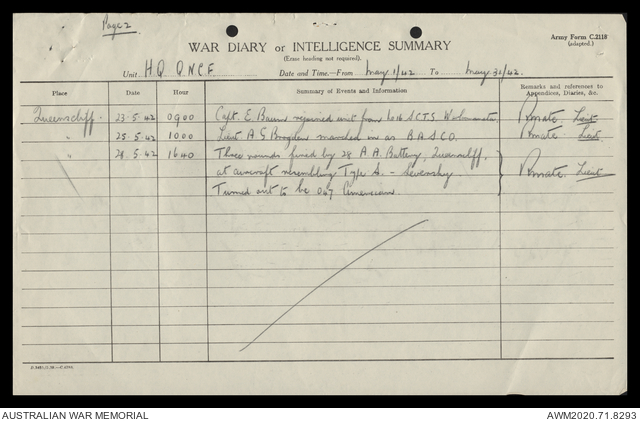 Page 2
Army Form C.2118
(adapted.)
WAR DIARY or INTELLIGENCE SUMMARY
(Erase heading not required).
Unit H.Q. Q.N.C.F. Date and Time—From May 1/42 To May 31/42.
Place Date Hour Summary of Events and Information Remarks and references to Appendices, Diaries, &c.
Queenscliff. 23.5.42 0900 Capt. E. Baum rejoined unit from Lieut
" 25.5.42 1000 Lieut A G marched in as B.A.S.C.O. Lieut
" 28.5.42 1640 Three rounds fired by 28 A.A. Battery, Queenscliff.
at aircraft resembling Type A. – Seversky. Lieut
Turned out to be 047 American.
AUSTRALIAN WAR MEMORIAL AWM2020.71.8293